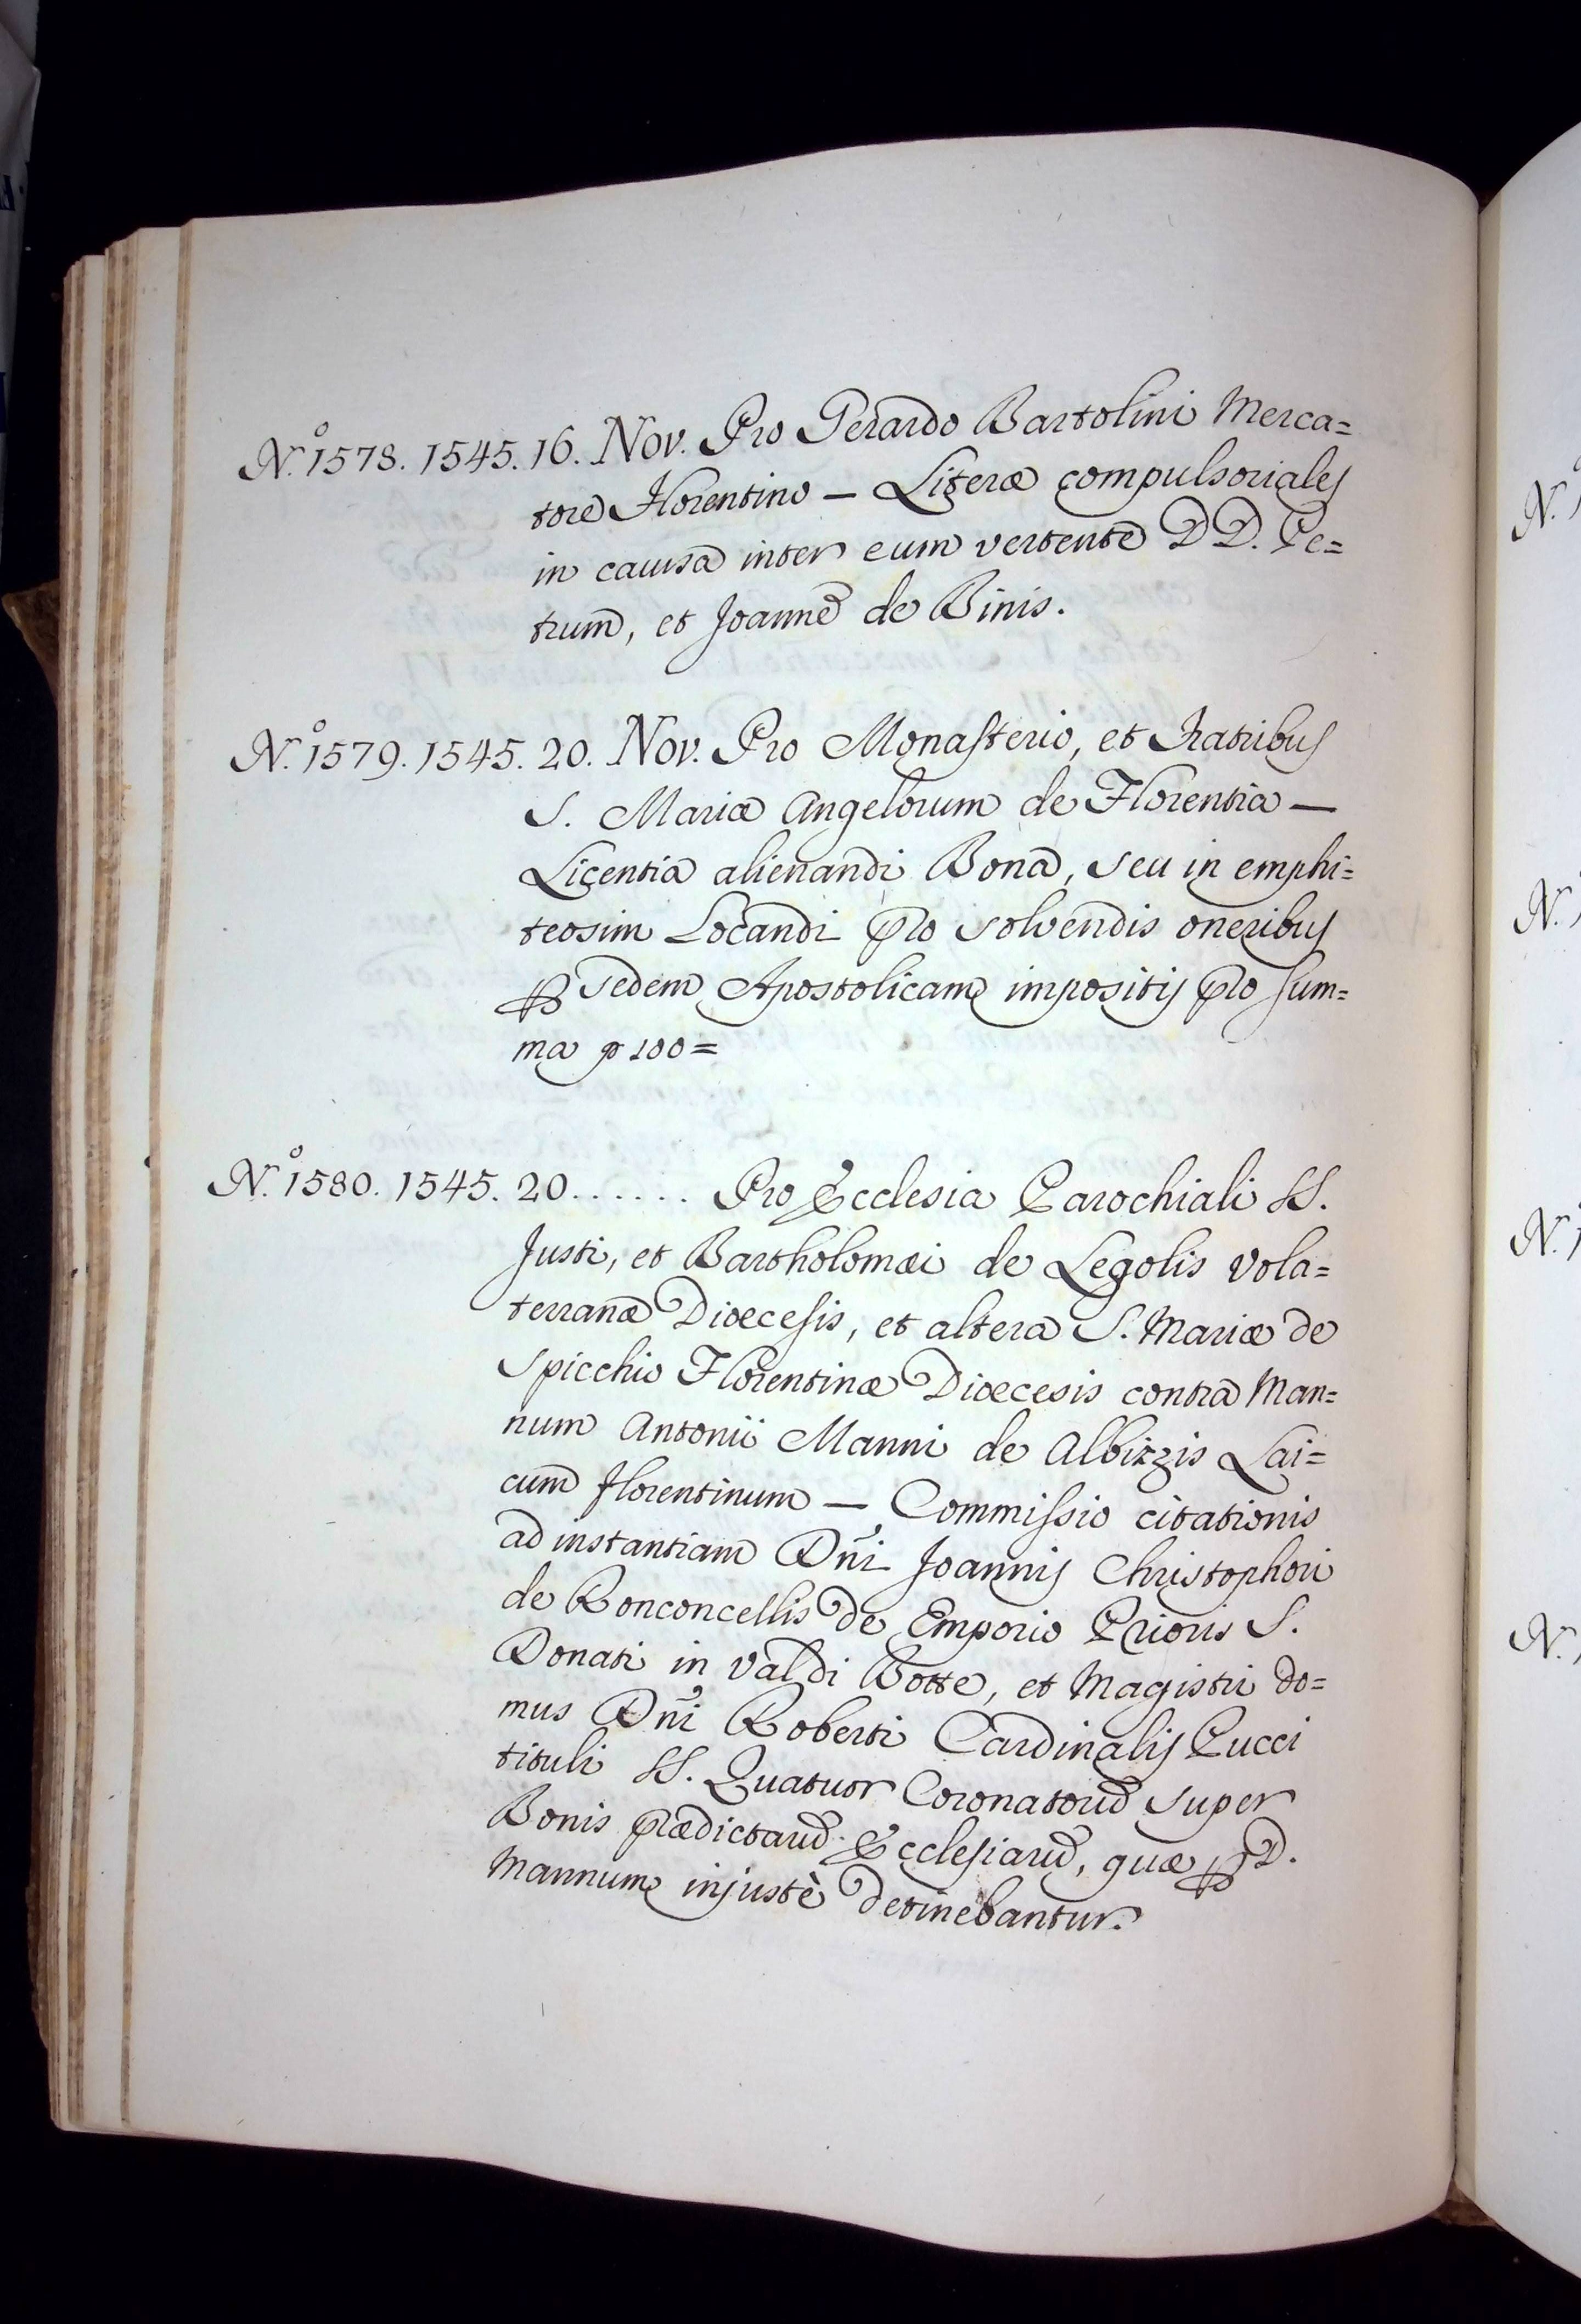 N.º 1578. 1545. 16. Nov. Pro Gerardo Bartolini Merca=
tore Florentino — Literæ compulsoriales
in causa inter eum vertente DD. Pe=
trum, et Joanne de Binis.
N.º 1579. 1545. 20. Nov. Pro Monasterio, et Fratribus
S. Mariæ Angelorum de Florentia —
Licentia alienandi Bona, seu in emphi=
teosim Locandi pro solvendis oneribus
p Sedem Apostolicam impositis pro sum=
ma p 100=
N.º 1580. 1545. 20...... Pro Ecclesia Parochiali SS.
Justi, et Bartholomæi de Legolis Vola=
terranæ Diœcesis, et altera S. Mariæ de
Spicchio Florentinæ Diœcesis contra Man=
num Antonii Manni de Albizzis Lai=
cum florentinum — Commissio citationis
ad instantiam Dñi Joannis Christophori
de Ronconcellis de Emporio Prioris S.
Donati in Val di Botte, et Magistri do=
mus Dñi Roberti Cardinalis Pucci
tituli SS. Quatuor Coronatorū super
Bonis prædictarū Ecclesiarū, quæ p D.
Mannum injustè detinebantur.
N.
N.
N.
N.